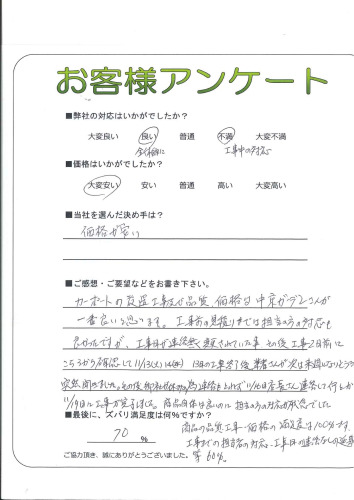 お客様アンケート
■弊社の対応はいかがでしたか?
大変良い 良い 普通 不満 大変不満
全体的に 工事中の対応
■価格はいかがでしたか?
大変安い 安い 普通 高い 大変高い
■当社を選んだ決め手は?
価格が安い
■ご感想・ご要望などをお書き下さい。
カーポートの設置工事及び品質、価格は中京ガーデンさんが
一番良いと思います。工事前の見積りまでは担当の方の対応も
良かったですが、工事日が連絡無く遅延されていた事、その後工事2日前に
こちらから確認して11/13(火)14(水) 13日の工事終了後業者さんが次は未定になりそうと
突然聞きました。その後
11/19日に工事が完了しました。商品自体は良いのに担当の方の対応が残念でした
■最後に、ズバリ満足度は何%ですか?
70 %
商品の品質、工事、価格の満足度は100%です。
工事までの担当者の対応、工事日の連絡なしの遅延
等 60%。
ご協力頂き、誠にありがとうございました。